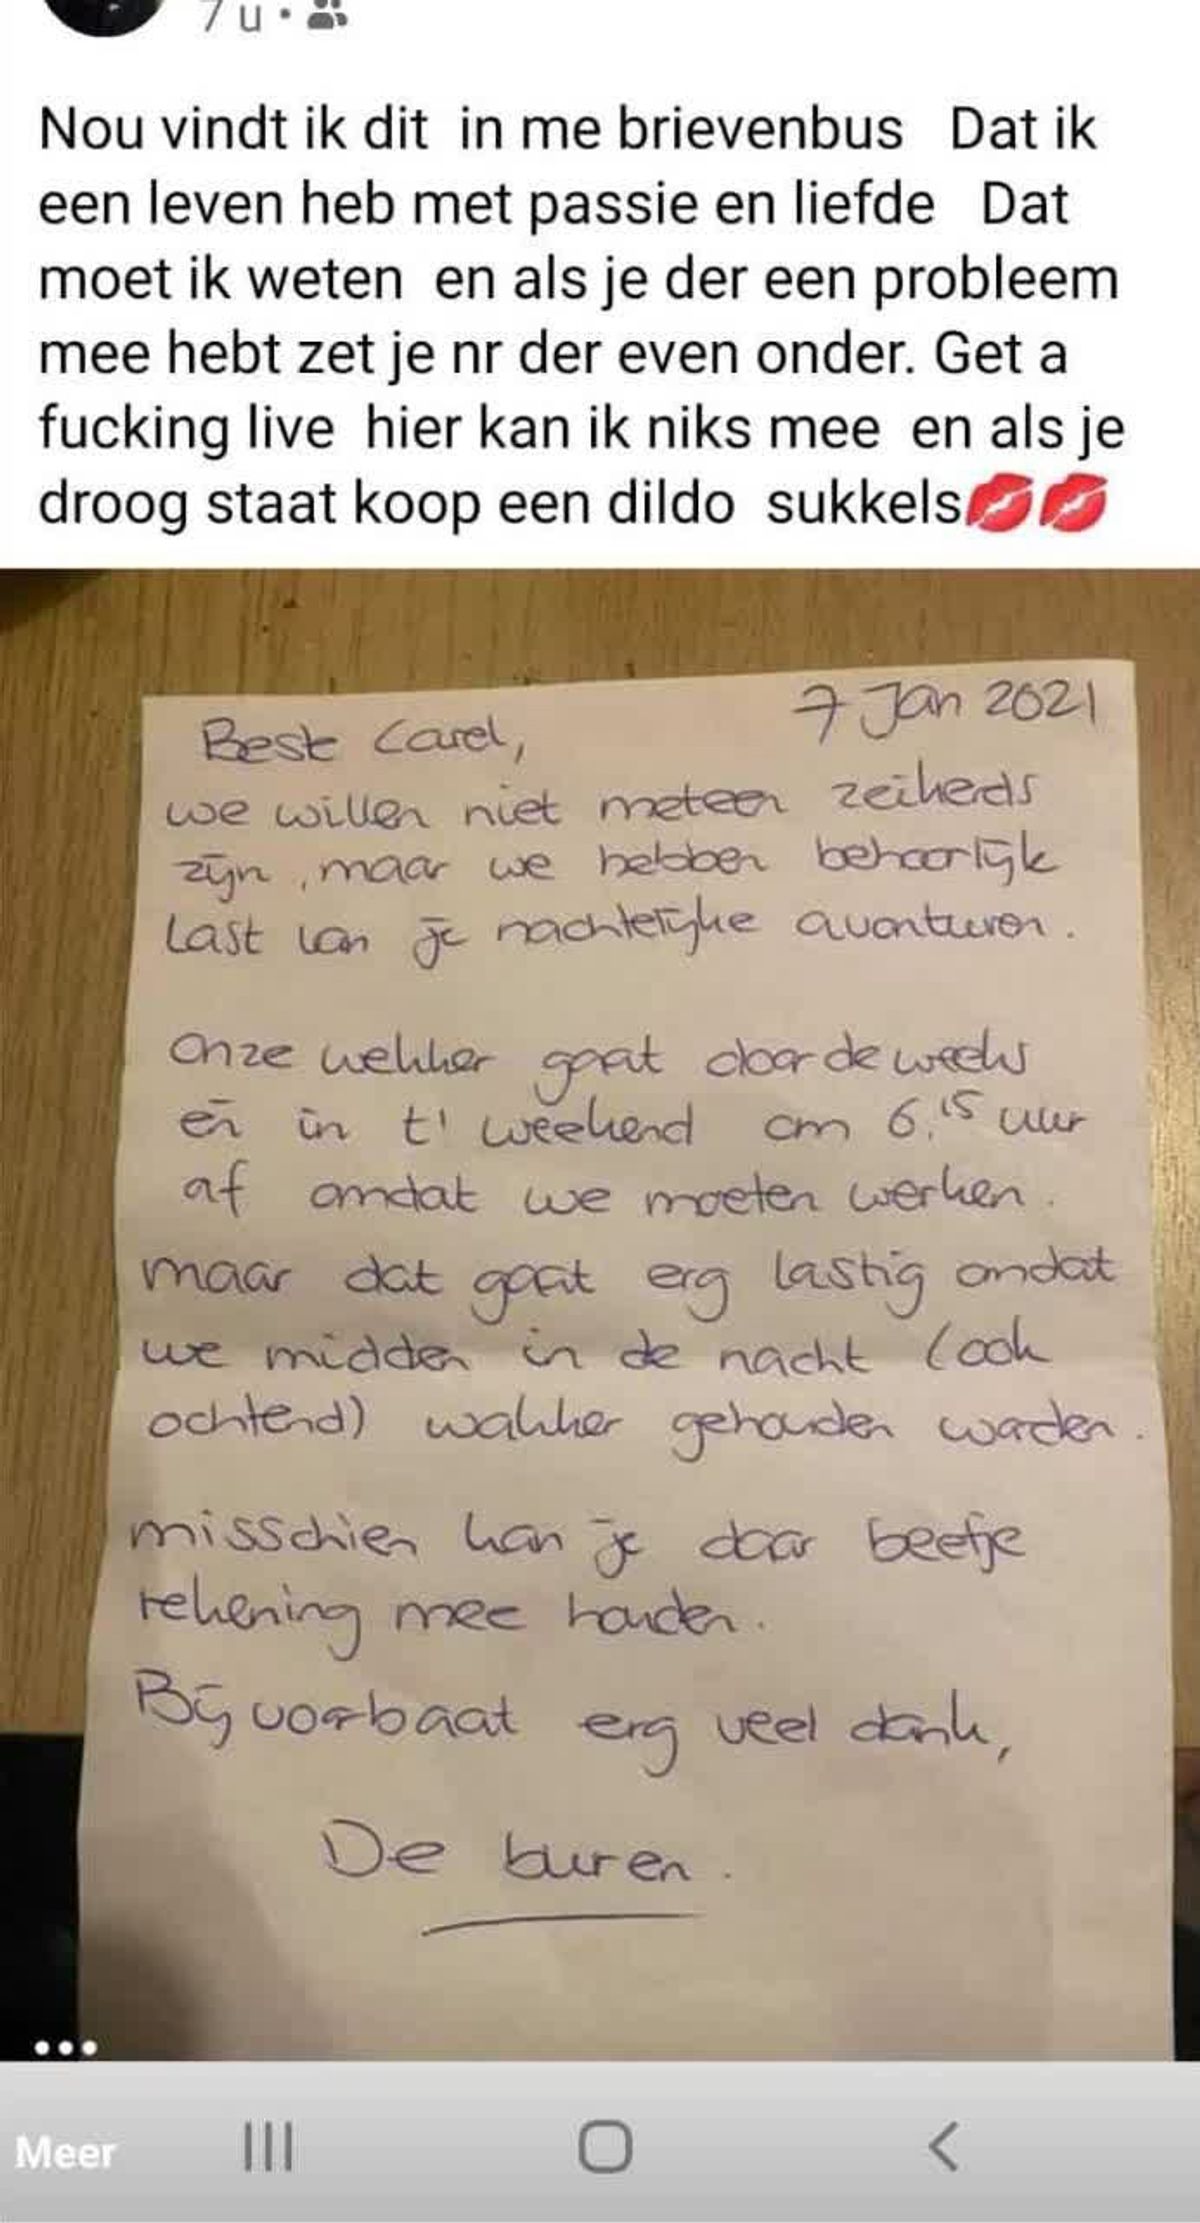 7 u •
Nou vindt ik dit in me brievenbus Dat ik
een leven heb met passie en liefde Dat
moet ik weten en als je der een probleem
mee hebt zet je nr der even onder. Get a
fucking live hier kan ik niks mee en als je
droog staat koop een dildo sukkels💋💋
7 Jan 2021
Beste Carel,
we willen niet meteen zeikerds
zijn, maar we hebben behoorlijk
Last van je nachtelijke avonturen.
Onze wekker gaat doordeweeks
én in t' weekend om 6.15 uur
af omdat we moeten werken.
maar dat gaat erg lastig omdat
we midden in de nacht (ook
ochtend) wakker gehouden worden.
misschien kan je daar beetje
rekening mee houden.
Bij voorbaat erg veel dank,
De buren.
Meer